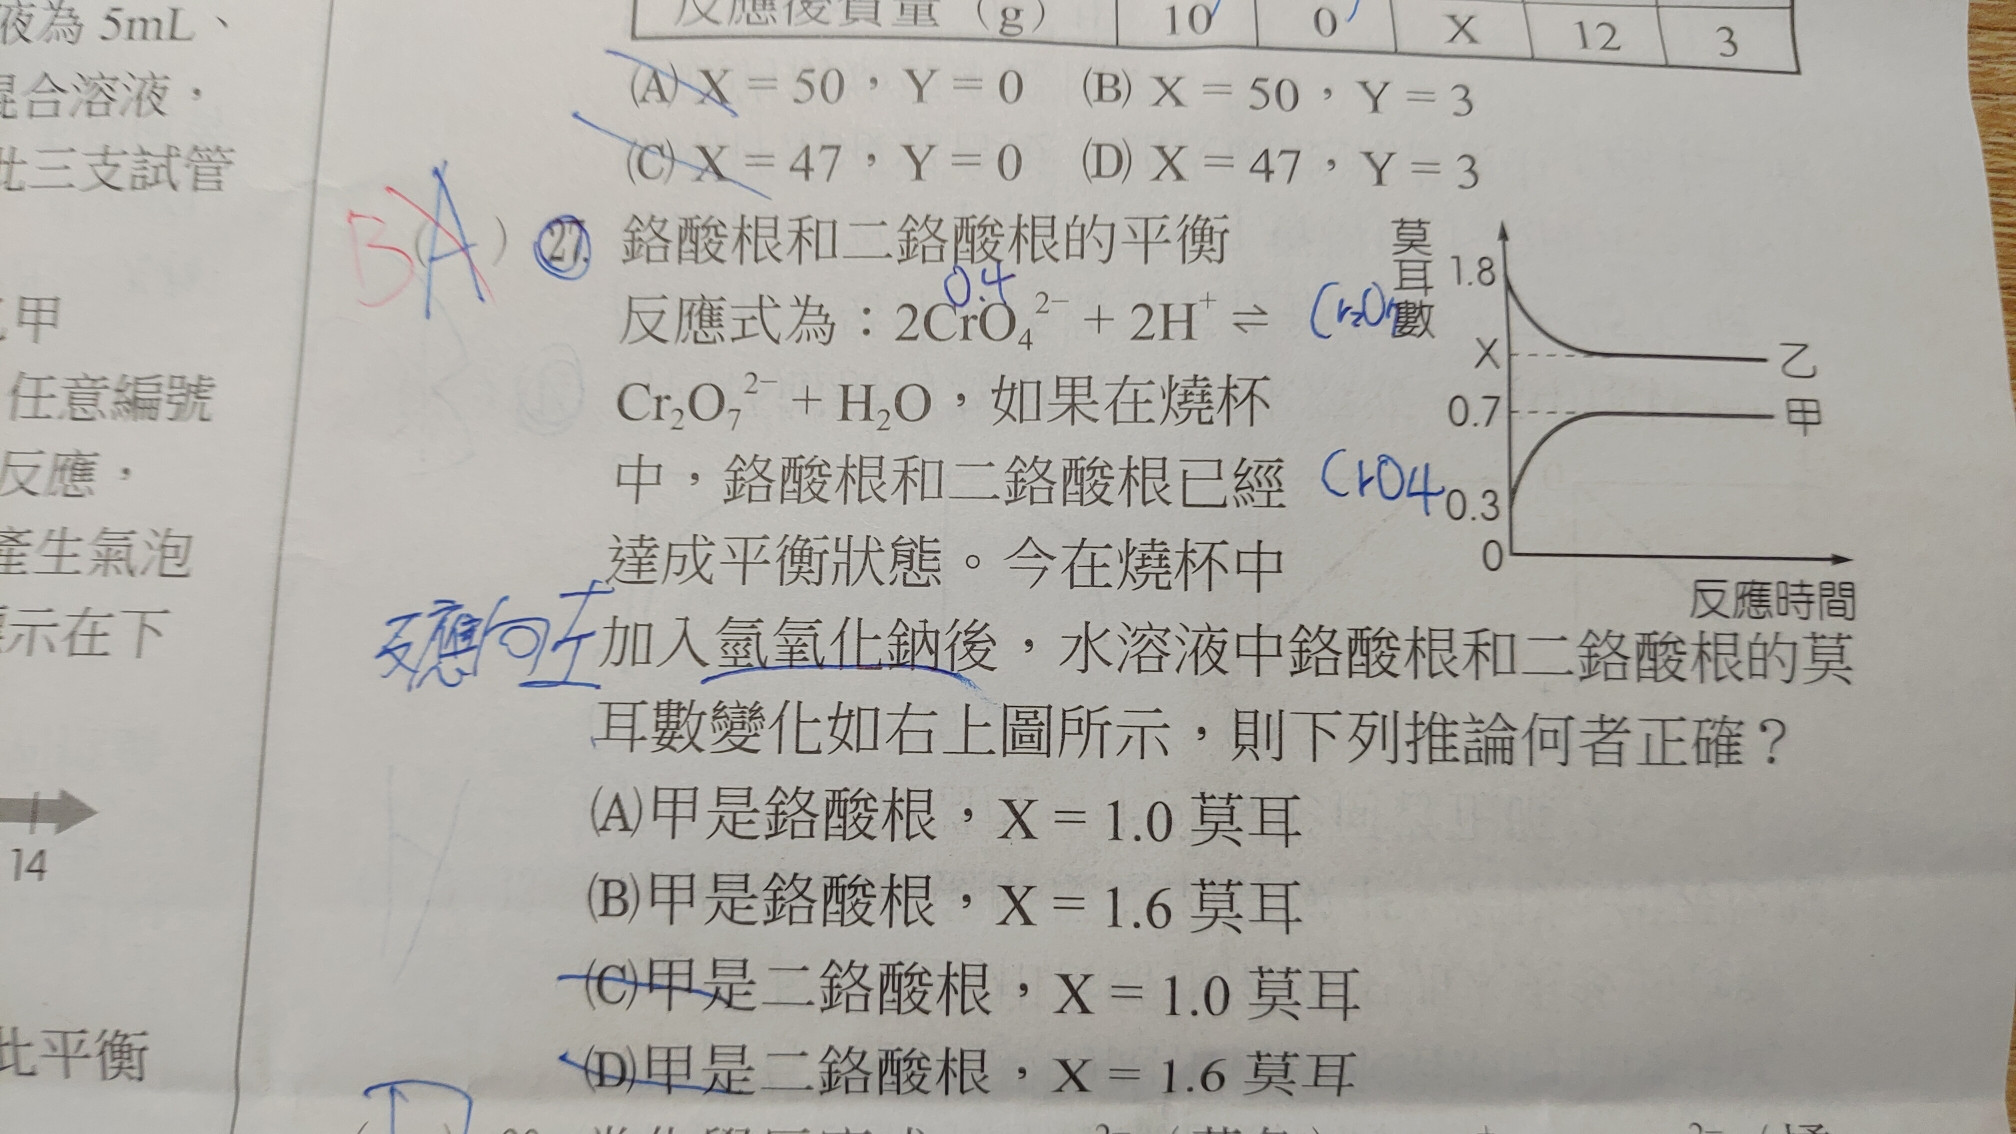 液為 5mL、
混合溶液，
此三支試管
甲
任意編號
反應，
產生氣泡
標示在下
14
此平衡
反應後質量（g） 10 0 X 12 3
(A) X = 50，Y = 0 (B) X = 50，Y = 3
(C) X = 47，Y = 0 (D) X = 47，Y = 3
B(A) 27. 鉻酸根和二鉻酸根的平衡
0.4
反應式為：2CrO₄²⁻ + 2H⁺ ⇌
Cr₂O₇²⁻ + H₂O，如果在燒杯
中，鉻酸根和二鉻酸根已經
達成平衡狀態。今在燒杯中
反應向左
加入氫氧化鈉後，水溶液中鉻酸根和二鉻酸根的莫
耳數變化如右上圖所示，則下列推論何者正確？
莫耳數
1.8
Cr₂O₇
X
乙
0.7
甲
CrO4
0.3
0
反應時間
(A)甲是鉻酸根，X = 1.0 莫耳
(B)甲是鉻酸根，X = 1.6 莫耳
(C)甲是二鉻酸根，X = 1.0 莫耳
(D)甲是二鉻酸根，X = 1.6 莫耳